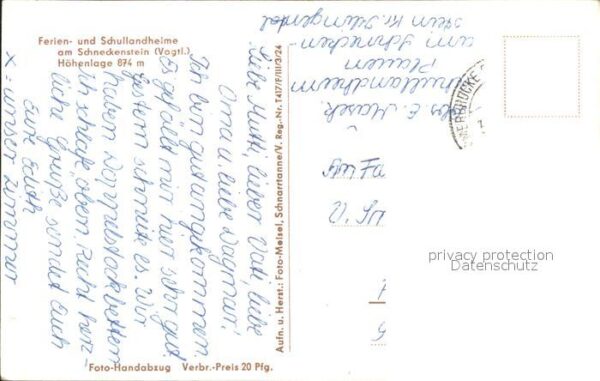 Ferien- und Schullandheime
am Schneckenstein (Vogtl.)
Höhenlage 874 m
Liebe Mutti, lieber Vati, liebe
Oma u. liebe Dagmar!
Ich bin gut angekommen.
Es gefällt mir hier sehr gut.
Gestern schneite es. Wir
haben Doppelstockbetten
Ich schlafe oben. Recht herz-
liche Grüße sendet Euch
Eure Edith
x = unser Zimmer
Foto-Handabzug Verbr.-Preis 20 Pfg.
Aufn. u. Herst.: Foto-Meisel, Schnarrtanne/V. Reg.-Nr. T417/F/III/3/24
Schullandheim
Plauen
am Schnecken
stein Kr. Klingenthal
privacy protection
Datenschutz